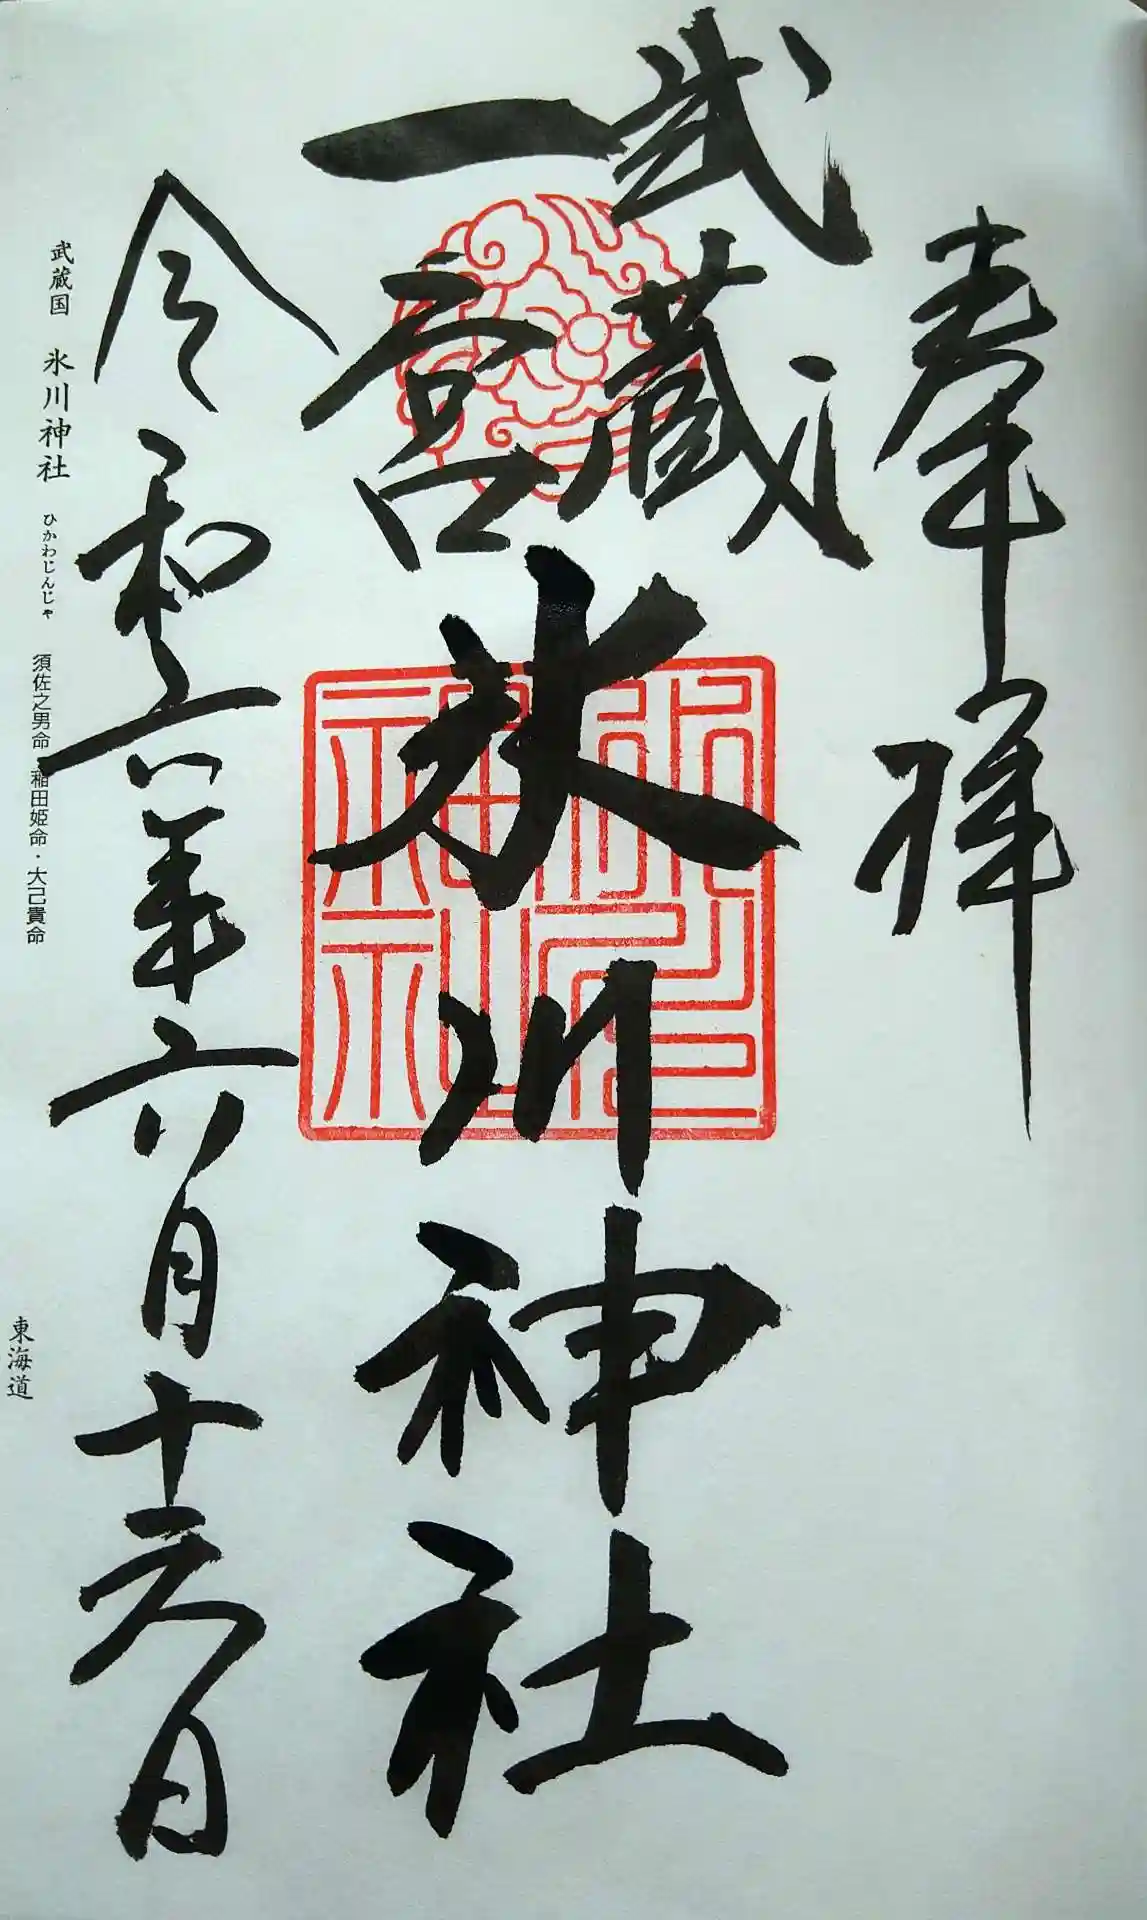 奉拝
武蔵
一宮
氷川神社
令和六年六月十六日
武蔵国 氷川神社 ひかわじんじゃ 須佐之男命・稲田姫命・大己貴命
東海道